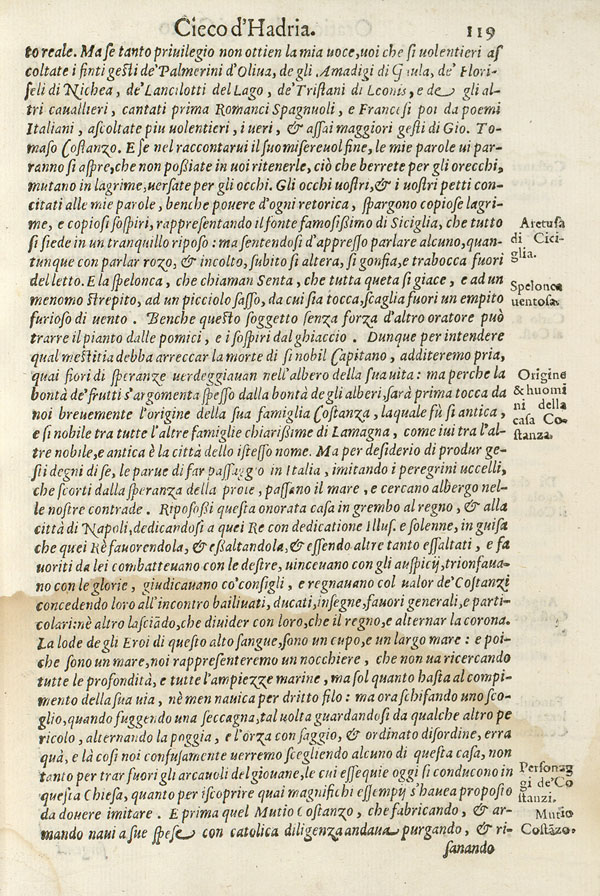 Cieco d'Hadria. 119
to reale. Ma se tanto priuilegio non ottien la mia uoce, uoi che si uolentieri as
coltate i finti gesti de' Palmerini d'Oliua, de gli Amadigi di Gaula, de' Flori-
seli di Nichea, de' Lancilotti del Lago, de' Tristani di Leonis, e de gli al-
tri cauallieri, cantati prima Romanci Spagnuoli, e Francesi poi da poemi
Italiani, ascoltate piu uolentieri, i ueri, & assai maggiori gesti di Gio. To-
maso Costanzo. E se nel raccontarui il suo misereuol fine, le mie parole ui par-
ranno si aspre, che non poßiate in uoi ritenerle, ciò che berrete per gli orecchi,
mutano in lagrime, uersate per gli occhi. Gli occhi uostri, & i uostri petti con-
citati alle mie parole, benche pouere d'ogni retorica, spargono copiose lagri-
me, e copiosi sospiri, rappresentando il fonte famosißimo di Siciglia, che tutto
si siede in un tranquillo riposo: ma sentendosi d'appresso parlare alcuno, quan-
tunque con parlar rozo, & incolto, subito si altera, si gonfia, e trabocca fuori
del letto. E la spelonca, che chiaman Senta, che tutta queta si giace, e ad un
menomo strepito, ad un picciolo sasso, da cui sia tocca, scaglia fuori un empito
furioso di uento. Benche questo soggetto senza forza d'altro oratore può
trarre il pianto dalle pomici, e i sospiri dal ghiaccio. Dunque per intendere
qual mestitia debba arreccar la morte di si nobil Capitano, additeremo pria,
quai fiori di speranze uerdeggiauan nell'albero della sua uita: ma perche la
bontà de' frutti s'argomenta spesso dalla bontà de gli alberi, sarà prima tocca da
noi breuemente l'origine della sua famiglia Costanza, laquale fù si antica,
e si nobile tra tutte l'altre famiglie chiarißime di Lamagna, come iui tra l'al-
tre nobile, e antica è la città dello istesso nome. Ma per desiderio di produr ge-
sti degni di se, le parue di far passaggio in Italia, imitando i peregrini uccelli,
che scorti dalla speranza della prole, passano il mare, e cercano albergo nel-
le nostre contrade. Riposoßi questa onorata casa in grembo al regno, & alla
città di Napoli, dedicandosi a quei Re con dedicatione Illus. e solenne, in guisa
che quei Rè fauorendola, & eßaltandola, & essendo altre tanto essaltati, e fa
uoriti da lei combatteuano con le destre, uinceuano con gli auspicij, trionfaua-
no con le glorie, giudicauano co' consigli, e regnauano col ualor de' Costanzi
concedendo loro all'incontro bailiuati, ducati, insegne, fauori generali, e parti-
colari: nè altro lasciādo, che diuider con loro, che il regno, e alternar la corona.
La lode de gli Eroi di questo alto sangue, sono un cupo, e un largo mare: e poi-
che sono un mare, noi rappresenteremo un nocchiere, che non ua ricercando
tutte le profondità, e tutte l'ampiezze marine, ma sol quanto basta al compi-
mento della sua uia, nè men nauica per dritto filo: ma ora schifando uno sco-
glio, quando fuggendo una seccagna, tal uolta guardandosi da qualche altro pe
ricolo, alternando la poggia, e l'orza con saggio, & ordinato disordine, erra
quà, e là cosi noi confusamente uerremo scegliendo alcuno di questa casa, non
tanto per trar fuori gli arcauoli del giouane, le cui essequie oggi si conducono in
questa Chiesa, quanto per iscoprire quai magnifichi essempij s'hauea proposio
da douere imitare. E prima quel Mutio Costanzo, che fabricando, & ar-
mando naui a sue spese con catolica diligenza andaua purgando, & ri-
sanando
Aretusa
di Cici-
glia.
Spelonca
uentosa.
Origine
& huomi
ni della
casa Co-
stanza.
Personag
gi de' Co-
stanzi.
Mutio
Costāzo.